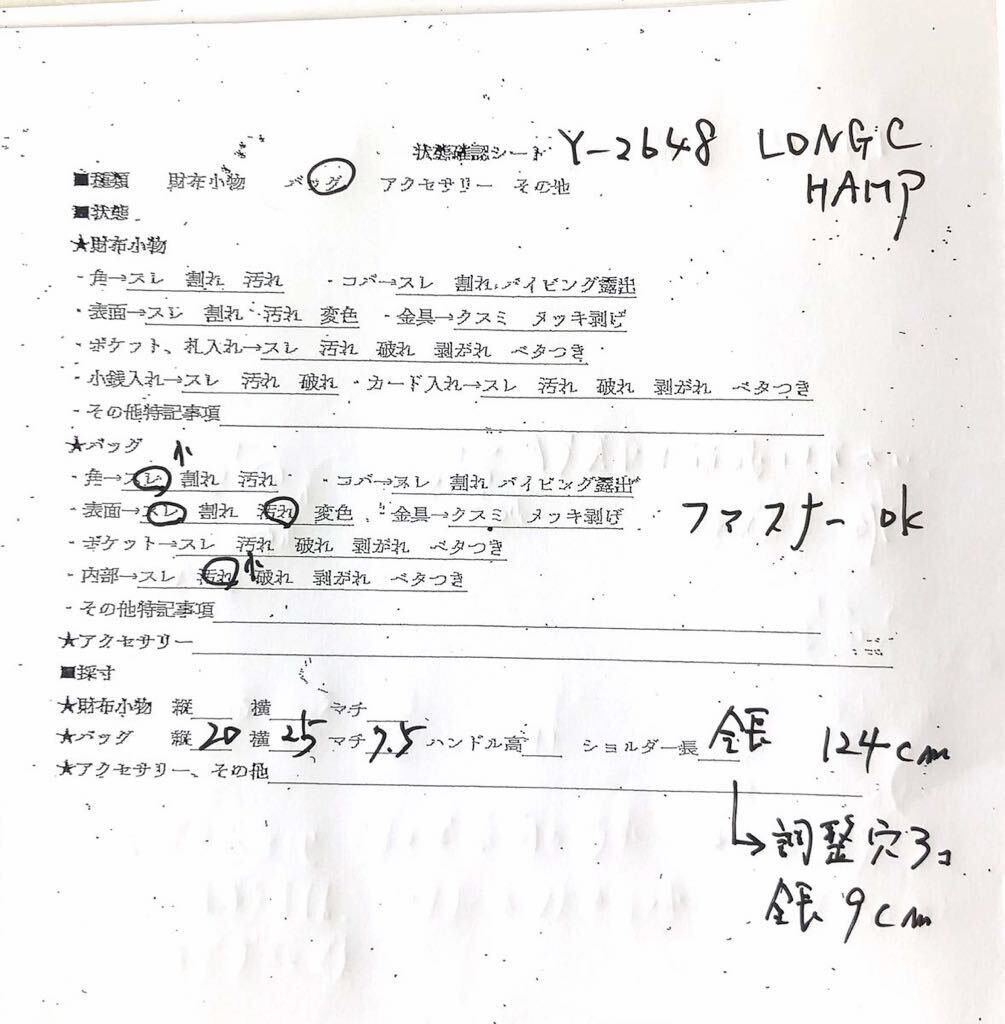 状態確認シート Y-2648 LONGC
HAMP
■種類 財布小物 バッグ アクセサリー その他
■状態
★財布小物
・角→スレ 割れ 汚れ ・コバ→スレ 割れ パイピング露出
・表面→スレ 割れ 汚れ 変色 ・金具→クスミ メッキ剥げ
・ポケット、札入れ→スレ 汚れ 破れ 剥がれ ベタつき
・小銭入れ→スレ 汚れ 破れ ・カード入れ→スレ 汚れ 破れ 剥がれ ベタつき
・その他特記事項
★バッグ 小
・角→スレ 割れ 汚れ ・コバ→スレ 割れ パイピング露出
・表面→スレ 割れ 汚れ 変色 ・金具→クスミ メッキ剥げ ファスナー ok
・ポケット→スレ 汚れ 破れ 剥がれ ベタつき
・内部→スレ 汚れ 小 破れ 剥がれ ベタつき
・その他特記事項
★アクセサリー
■採寸
★財布小物 縦 横 マチ
★バッグ 縦 20 横 25 マチ 7.5 ハンドル高 ショルダー長 全長 124cm
★アクセサリー、その他
↳調整穴3コ
全長 9cm